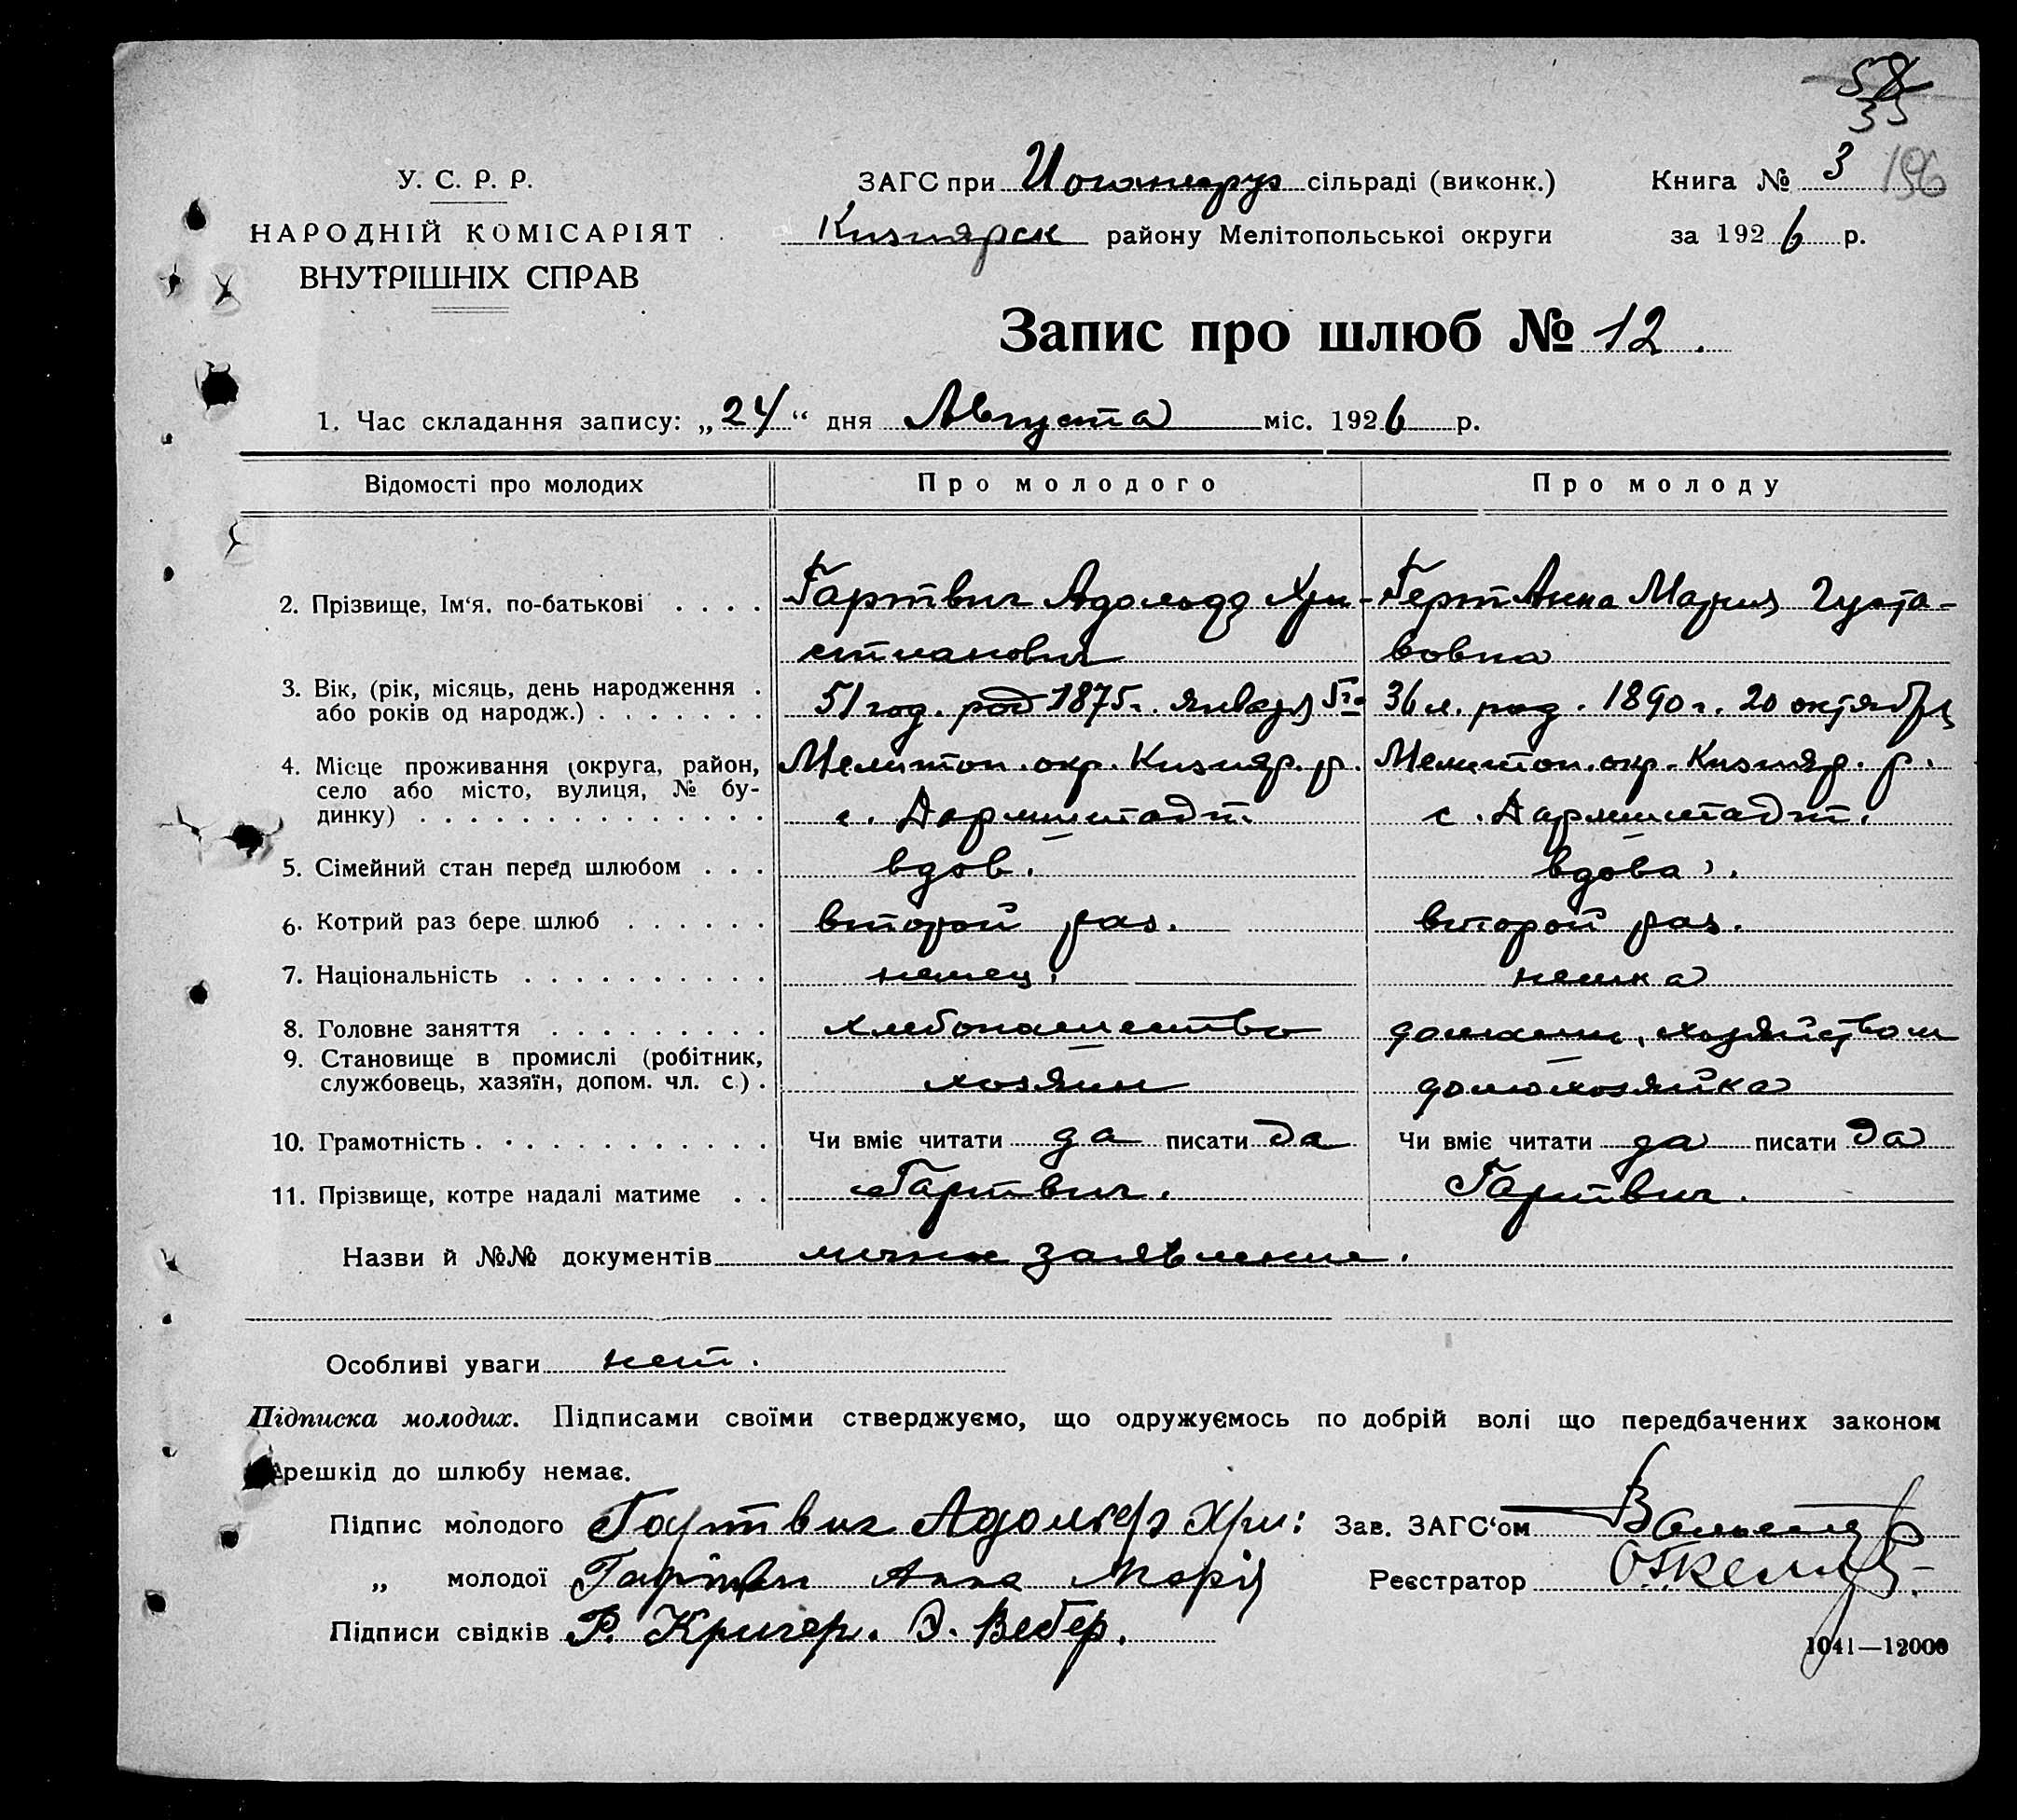 58
33
У. С. Р. Р.
ЗАГС при Иоганнеруг сільраді (виконк.)
Книга № 3 196
НАРОДНІЙ КОМІСАРІЯТ
Кизиярск району Мелітопольської округи
за 1926 р.
ВНУТРІШНІХ СПРАВ
Запис про шлюб № 12.
1. Час складання запису: „24“ дня Августа міс. 1926 р.
Відомості про молодих
Про молодого
Про молоду
2. Прізвище, Ім‘я, по-батькові . . . .
Гартвиг Адольф Хри-
стианович
Герт Анна Мария Густа-
вовна
3. Вік, (рік, місяць, день народження .
або років од народж.) . . . . . . .
51 год. род 1875 г. января 5го
36 л. род. 1890 г. 20 октября
4. Місце проживання (округа, район,
село або місто, вулиця, № бу-
динку) . . . . . . . . . . . . . .
Мелитоп. окр. Кизияр. р.
с. Дармштадт.
Мелитоп. окр. Кизияр. р.
с. Дармштадт.
5. Сімейний стан перед шлюбом . . .
вдов.
вдова.
6. Котрий раз бере шлюб . . . . . .
второй раз.
второй раз.
7. Національність . . . . . . . . . .
немец.
немка
8. Головне заняття . . . . . . . . .
хлебопашество
домашн. хозяйством
9. Становище в промислі (робітник,
службовець, хазяїн, допом. чл. с.) .
хозяин
домохозяйка
10. Грамотність . . . . . . . . . . . .
Чи вміє читати да писати да
Чи вміє читати да писати да
11. Прізвище, котре надалі матиме . .
Гартвиг.
Гартвиг.
Назви й №№ документів личное заявление.
Особливі уваги нет.
Підписка молодих. Підписами своїми стверджуємо, що одружуємось по добрій волі що передбачених законом
перешкід до шлюбу немає.
Підпис молодого Гартвиг Адольф Хри:
Зав. ЗАГС‘ом
„ молодої Гартвиг Анна Марія
Реєстратор
Підписи свідків Р. Кригер. Э. Вебер.
1041—12000